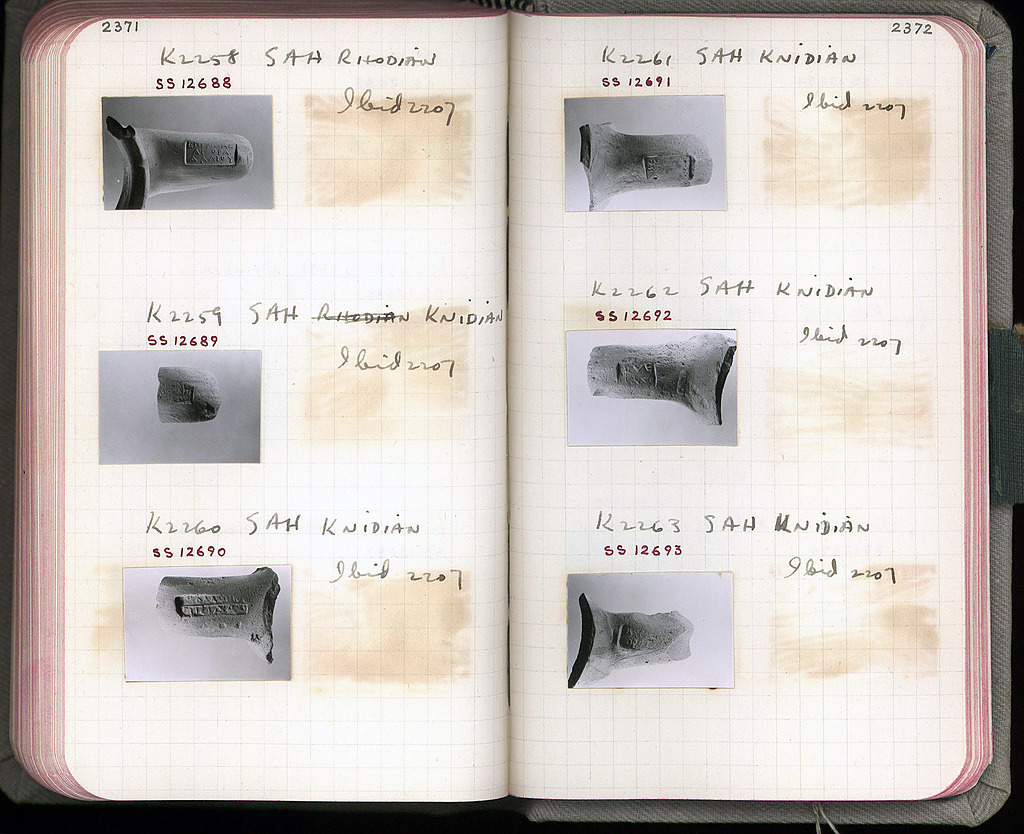 2371
K2258 SAH RHODIAN
SS 12688
Ibid 2207
K2259 SAH RHODIAN KNIDIAN
SS 12689
Ibid 2207
K2260 SAH KNIDIAN
SS 12690
Ibid 2207
2372
K2261 SAH KNIDIAN
SS 12691
Ibid 2207
K2262 SAH KNIDIAN
SS 12692
Ibid 2207
K2263 SAH KNIDIAN
SS 12693
Ibid 2207